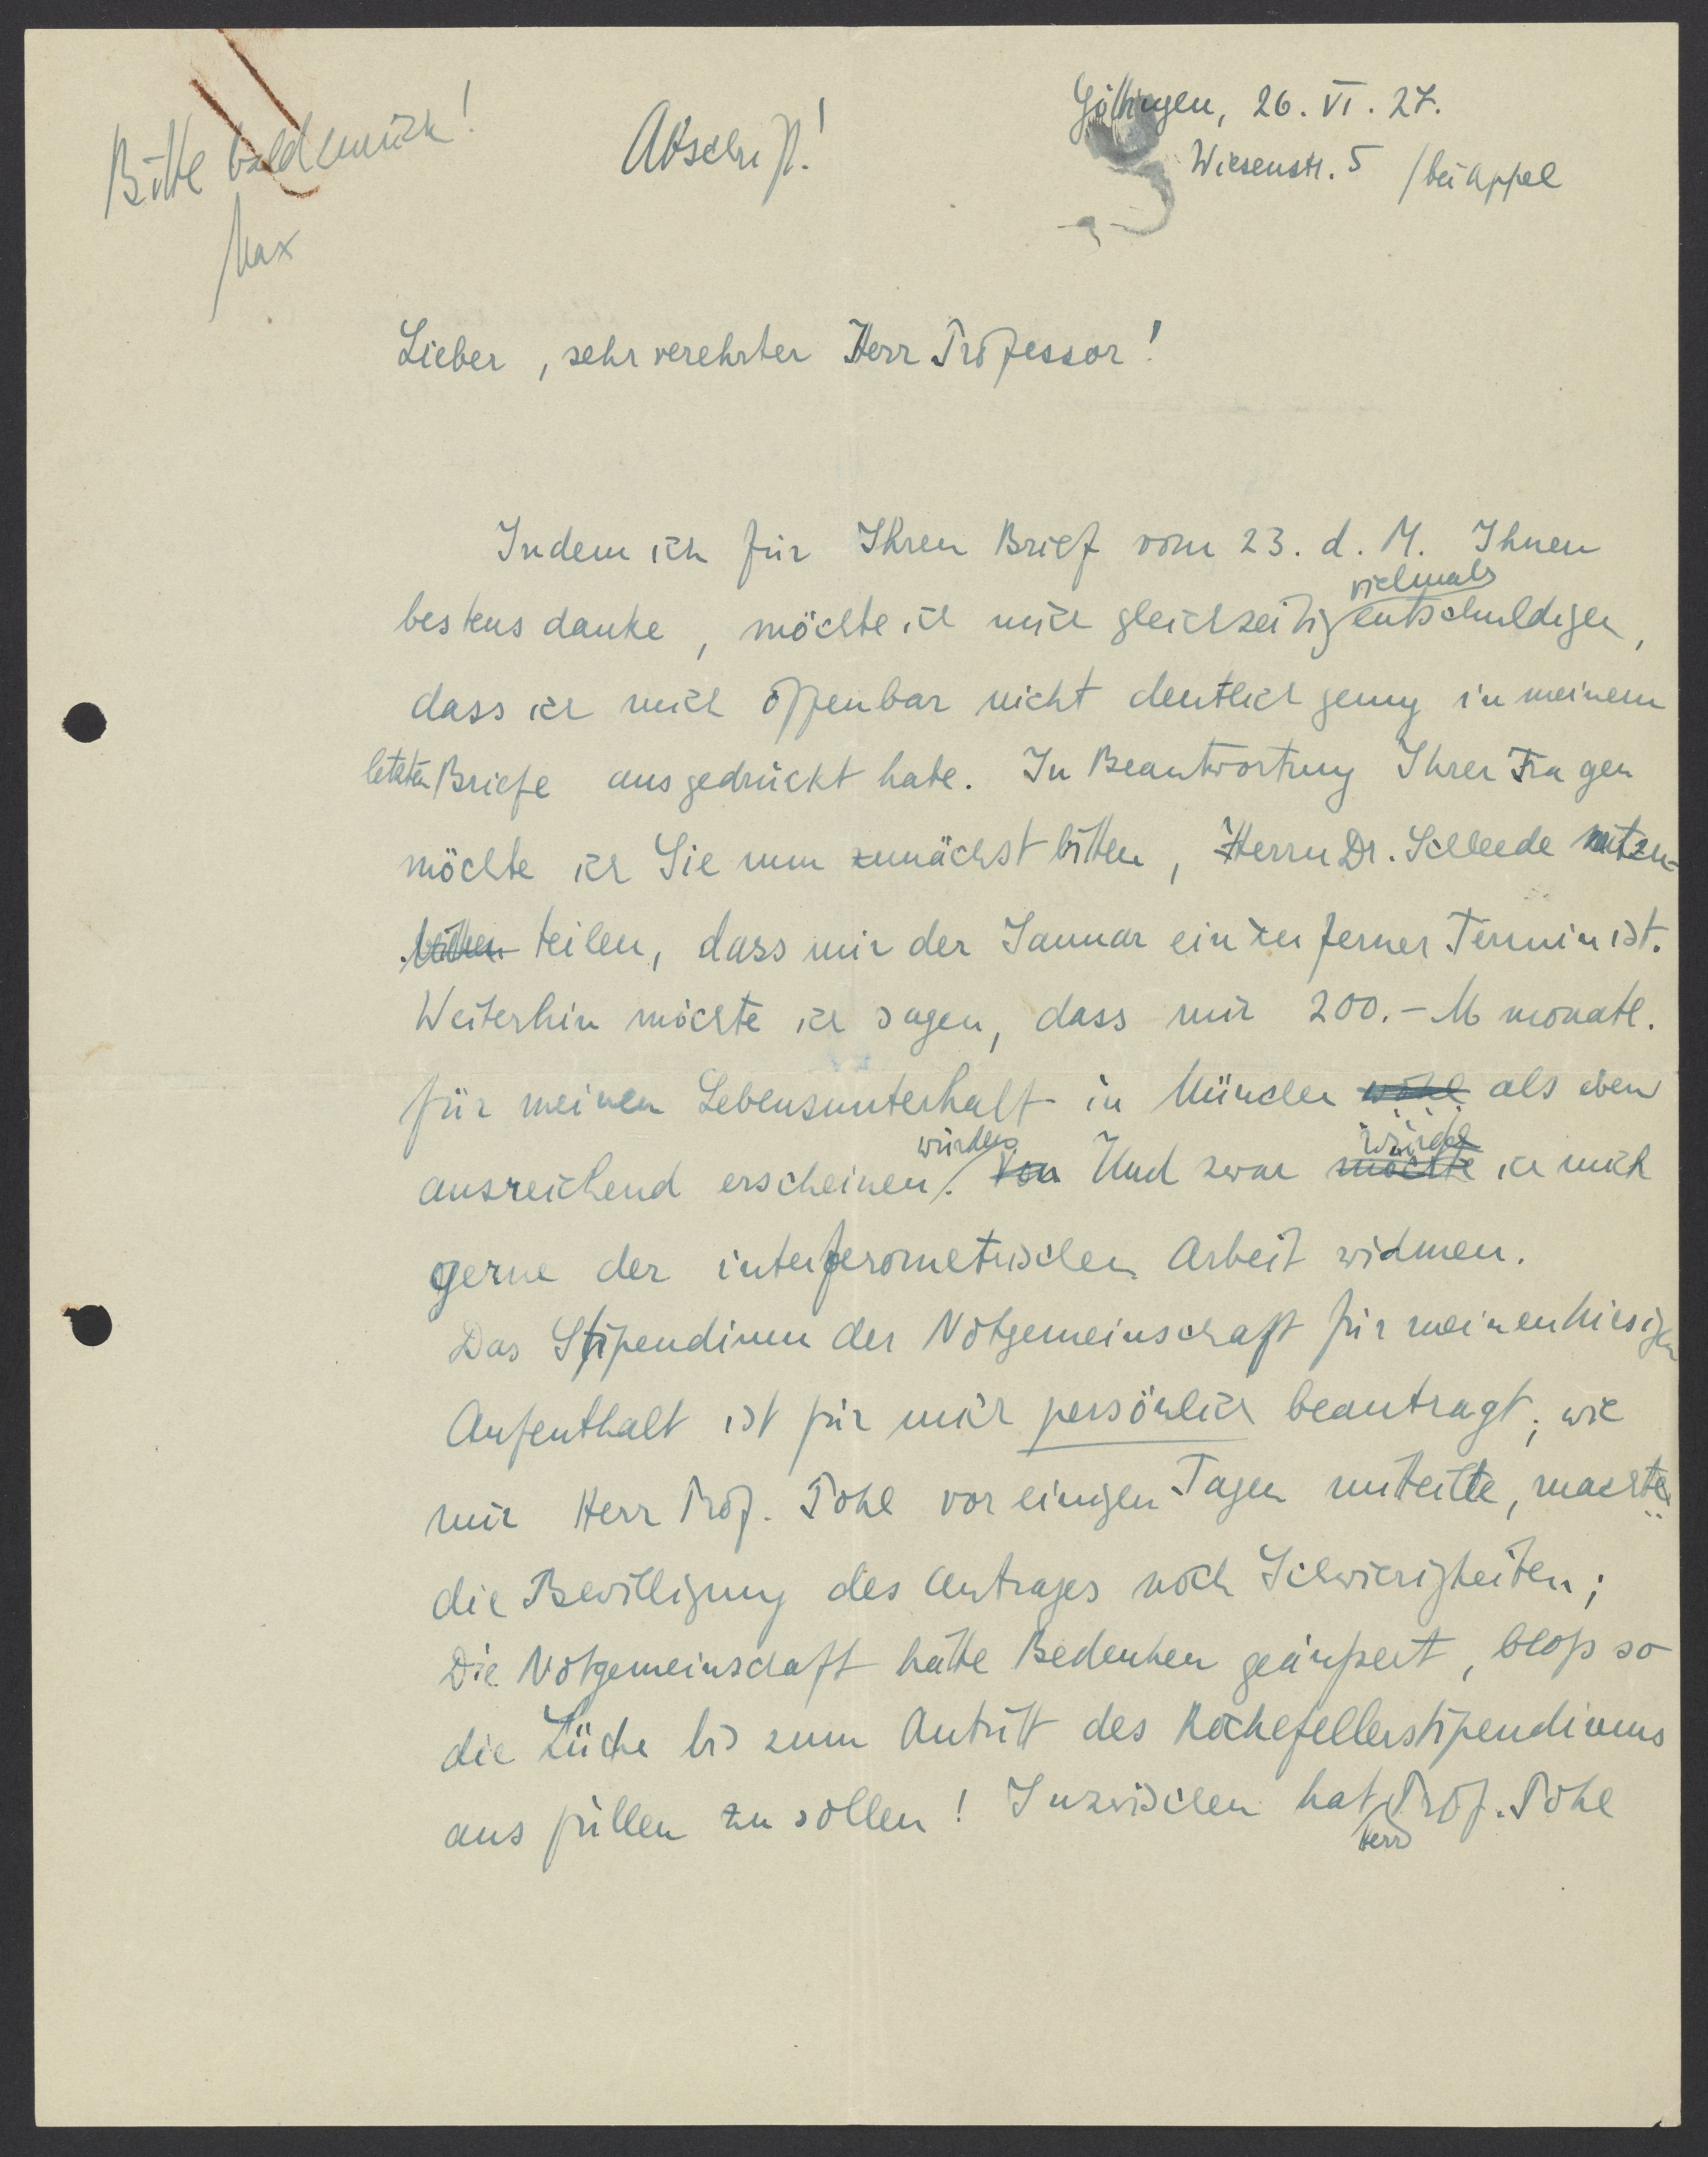 Bitte bald zurück!
Max
Abschrift!
Göttingen, 26. VI. 27.
Wiesenstr. 5 / bei Appel
Lieber, sehr verehrter Herr Professor!
Indem ich für Ihren Brief vom 23. d. M. Ihnen
vielmals
bestens danke, möchte ich mich gleichzeitig entschuldigen,
dass ich mich offenbar nicht deutlich genug in meinem
letzten Briefe ausgedrückt habe. In Beantwortung Ihrer Fragen
möchte ich Sie nun zunächst bitten, Herrn Dr. Schleede mitzu-
teilen, dass mir der Januar ein zu ferner Termin ist.
Weiterhin möchte ich sagen, dass mir 200.- M monatl.
für meinen Lebensunterhalt in München wohl als eben
würden würde
ausreichend erscheinen. Von Und zwar möchte ich mich
gerne der interferometrischen Arbeit widmen.
Das Stipendium der Notgemeinschaft für meinen hiesigen
Aufenthalt ist für mich persönlich beantragt; wie
mir Herr Prof. Pohl vor einigen Tagen mitteilte, machte
die Bewilligung des Antrages noch Schwierigkeiten;
Die Notgemeinschaft hätte Bedenken geäußert, bloß so
die Lücke bis zum Antritt des Rockefellerstipendiums
aus füllen zu sollen! Inzwischen hat Prof. Pohl
Herr